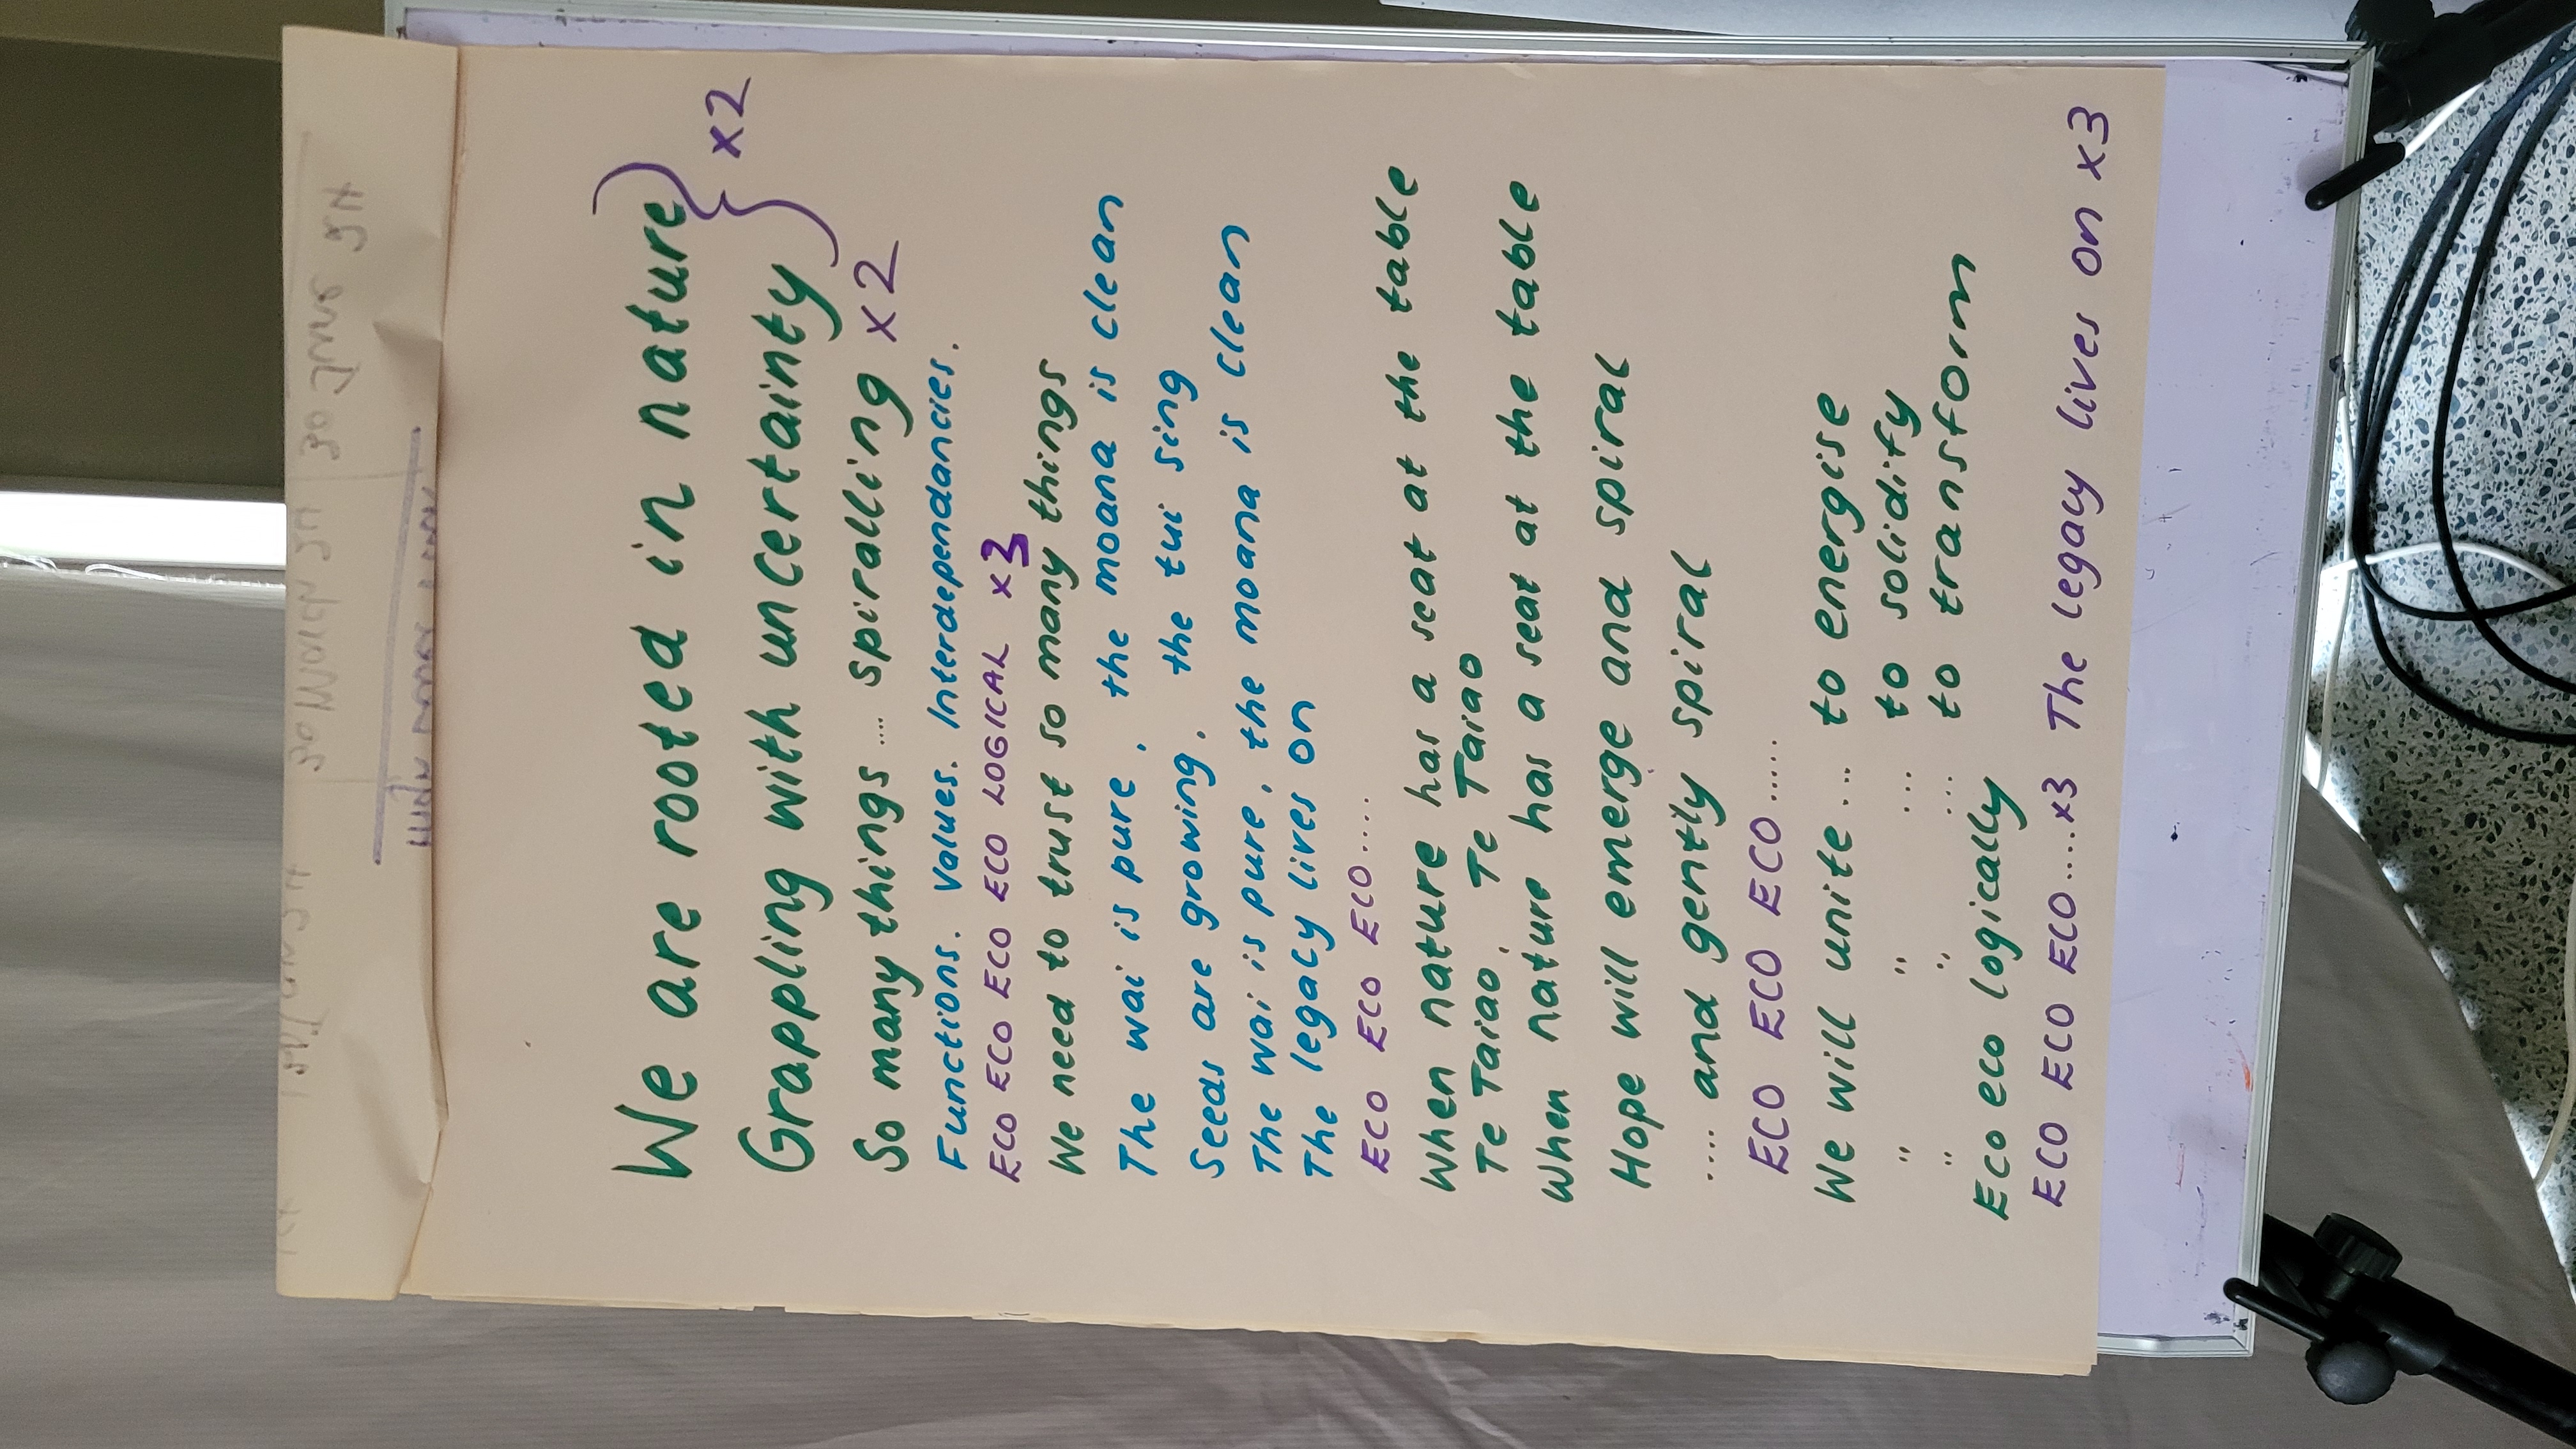 We are rooted in nature
Grappling with uncertainty } x2
So many things .... spiralling x2
Functions. Values. Interdependancies.
ECO ECO ECO ECO LOGICAL x3
We need to trust so many things
The wai is pure, the moana is clean
Seeds are growing, the tui sing
The wai is pure, the moana is clean
The legacy lives on
ECO ECO ECO....
When nature has a seat at the table
Te Taiao, Te Taiao
When nature has a seat at the table
Hope will emerge and spiral
.... and gently spiral
ECO ECO ECO.....
We will unite... to energise
" " ... to solidify
" " ... to transform
Eco eco logically
ECO ECO ECO....x3 The legacy lives on x3